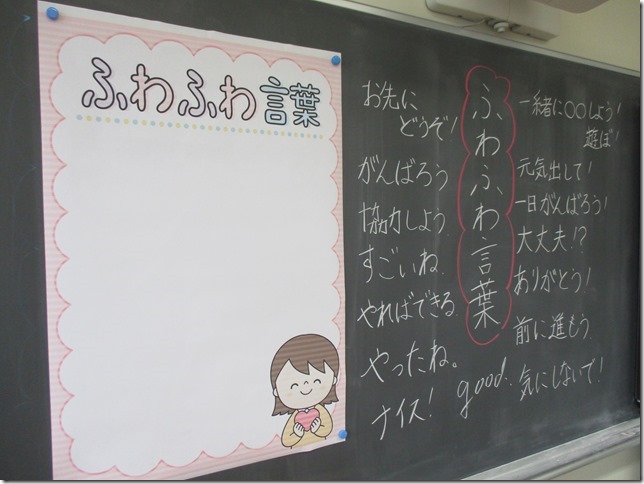 ふわふわ言葉
お先に
どうぞ!
がんばろう
協力しよう
すごいね。
やればできる
やったね。
ナイス!
good.
ふわふわ言葉
一緒に○○しよう!
遊ぼ!
元気出して!
一日がんばろう!
大丈夫!?
ありがとう!
前に進もう
気にしないで!